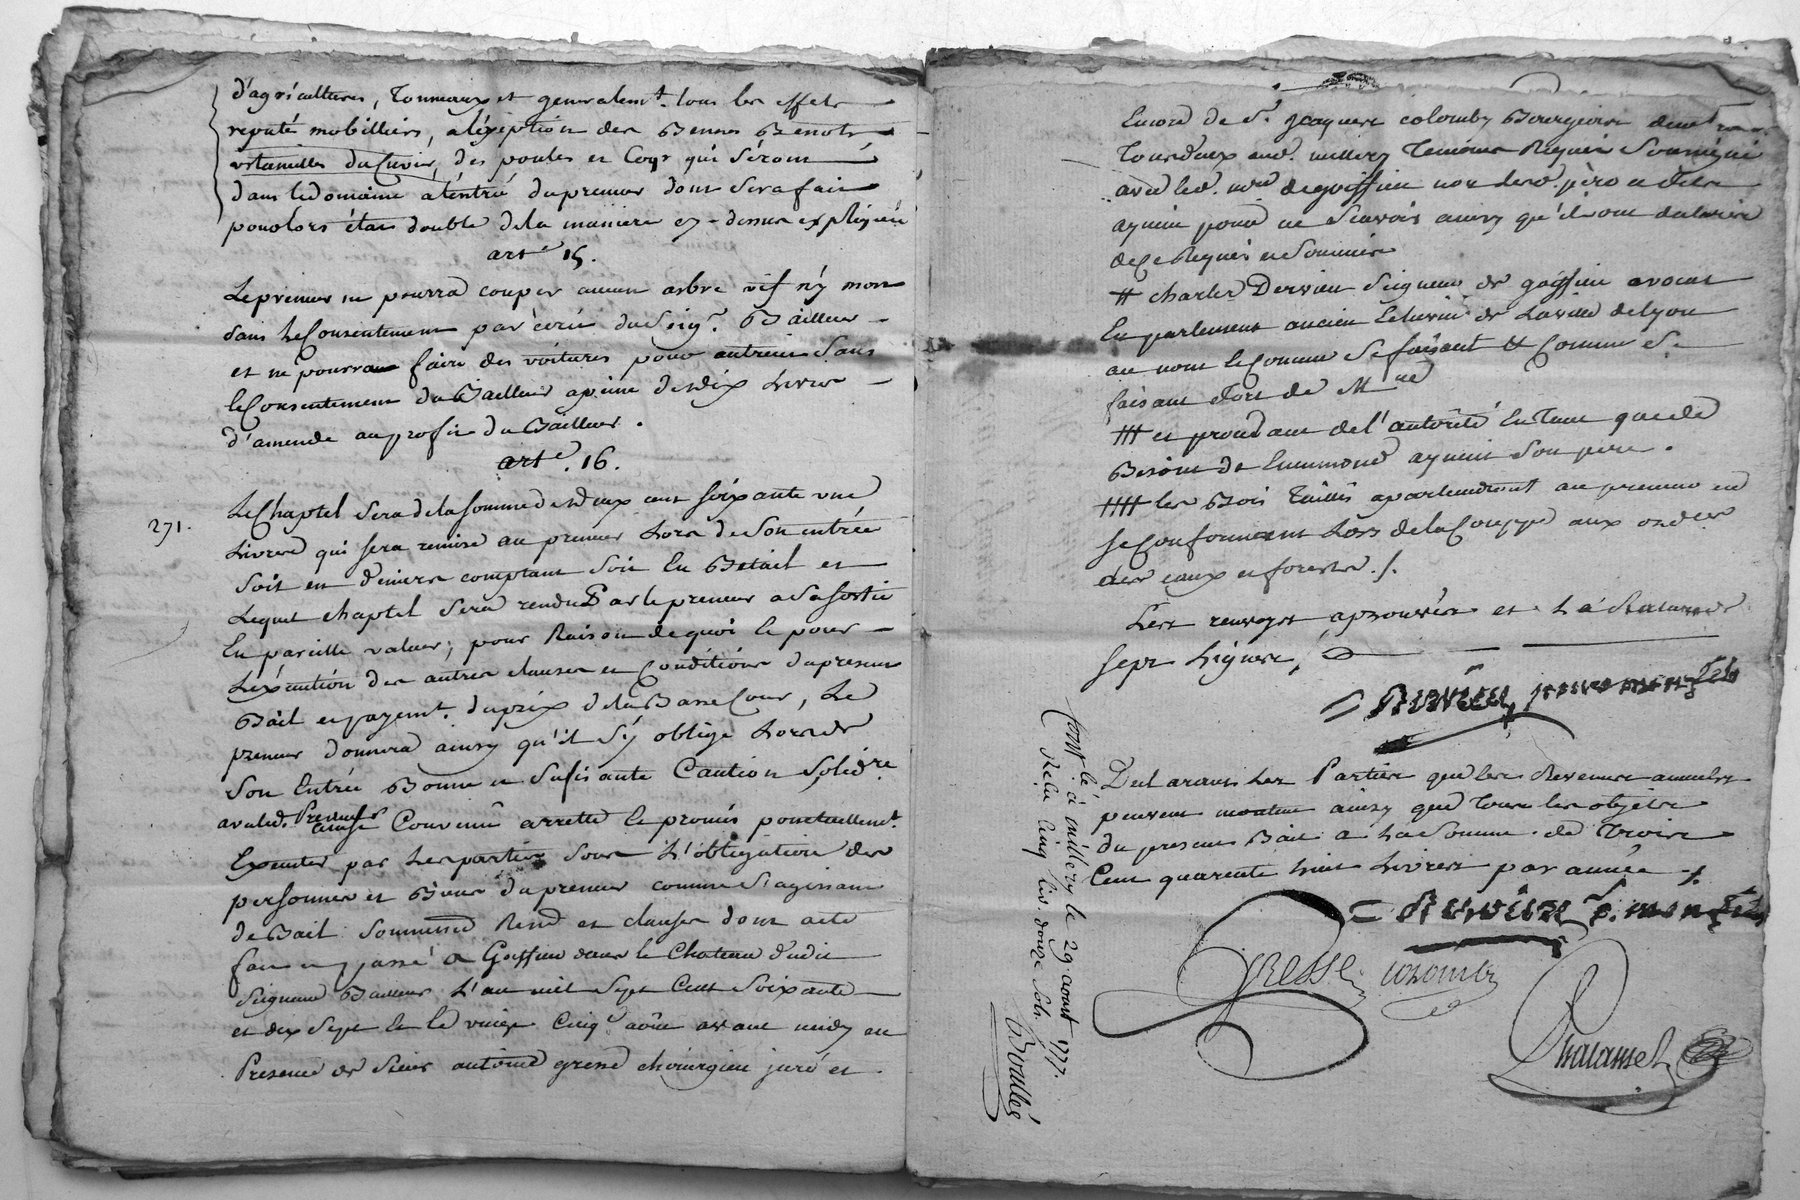 d'agricultures, Tonneaux et generalemt. tous les effets
reputé mobilliers, a l'exeption des Bennes Bennots
des poules et Coqs qui séront
dans le domaine a l'entrée du preneur dont sera fait
pou lors état double de la maniere cy-dessus expliquée
arte 15.
Le preneur ne pourra couper aucun arbre vif n'y mort
sans le Consentement par écrit du Seigr. Bailleur
et ne pourra faire des voitures pour autruit sans
le Consentement du Bailleur a peine de dix Livres
d'amende au profit du Bailleur.
arte. 16.
271.
Le Chaptel sera de la somme de deux cent soixante une
Livres qui sera remise au preneur Lors de son entrée
soit en deniers comptant soit en Betail et
Lequel chaptel sera rendu Par le preneur a sa sortie
En pareille valeur; pour Raison de quoi et pour
L'exécution des autres clauses et Conditions du present
Bail et payemt. du prix de la Basse Cour, Le
preneur donnera ainsy qu'il s'y oblige Lors de
son Entrée Bonne et sufisante Caution Solidre
avec led. Preneur
ainsi Convenû arretté et promis ponctuellemt.
Executer par Les parties sous L'obligation des
personnes et Biens du preneur comme s'agissant
de Bail Soumissd Rend et clauses dont acte
fait et passé a Goiffieu dans le Chateau dudit
Seigneur Bailleur L'an mil sept Cent soixante
et dix sept et le vingt Cinqe. aôut avant midy en
Presence de Sieur antoine gresse chirurgien juré et
Encore de Sr. Jacques colomby Bourgeois
Tous deux aud. millery Temoins Requis Soussignés
avec led. de goiffieu non led. père et fils
aynein pour ne Scavoir ainsy qu'ils ont declarés
de ce Requis et Sommés
# charles Dervieu Seigneur de goiffieu avocat
En parlement ancien Echevin de La ville de Lyon
au nom et Comme se faisant & Comme se
faisant fort de Mme
## et procédant de l'autorité En Tant que de
Besoint de Ennemond aynein son pere.
### les Bois Taillis apartiendront au preneur en
se Conformant Lors de la Couppe aux ordres
des eaux et forests./.
Les renvoys aprouvés et La Rature de
sept Lignes,
Declarans Les Parties que les Revenus annuels
peuvent monter ainsy que tous les objets
du present Bail a La Somme de Trois
Cent quarente huit Livres par année ./.
Gresse colomby
Contlé à millery le 29. aout 1777.
Reçu Cinq liv. douze sols.